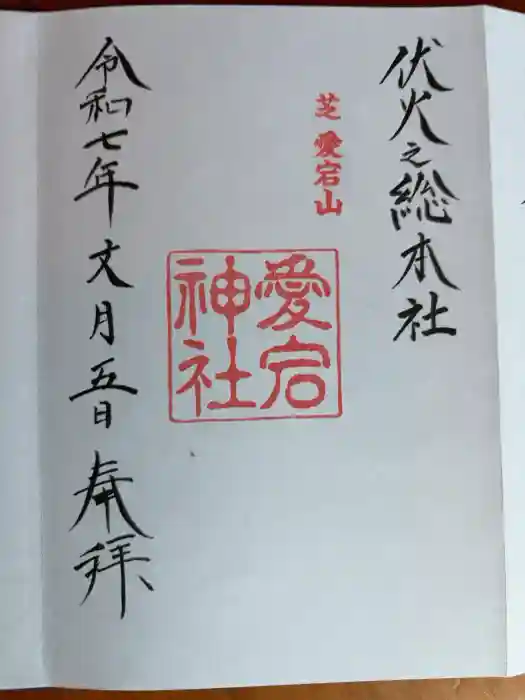 伏火之総本社
芝 愛宕山
愛宕
神社
令和七年文月五日奉拝